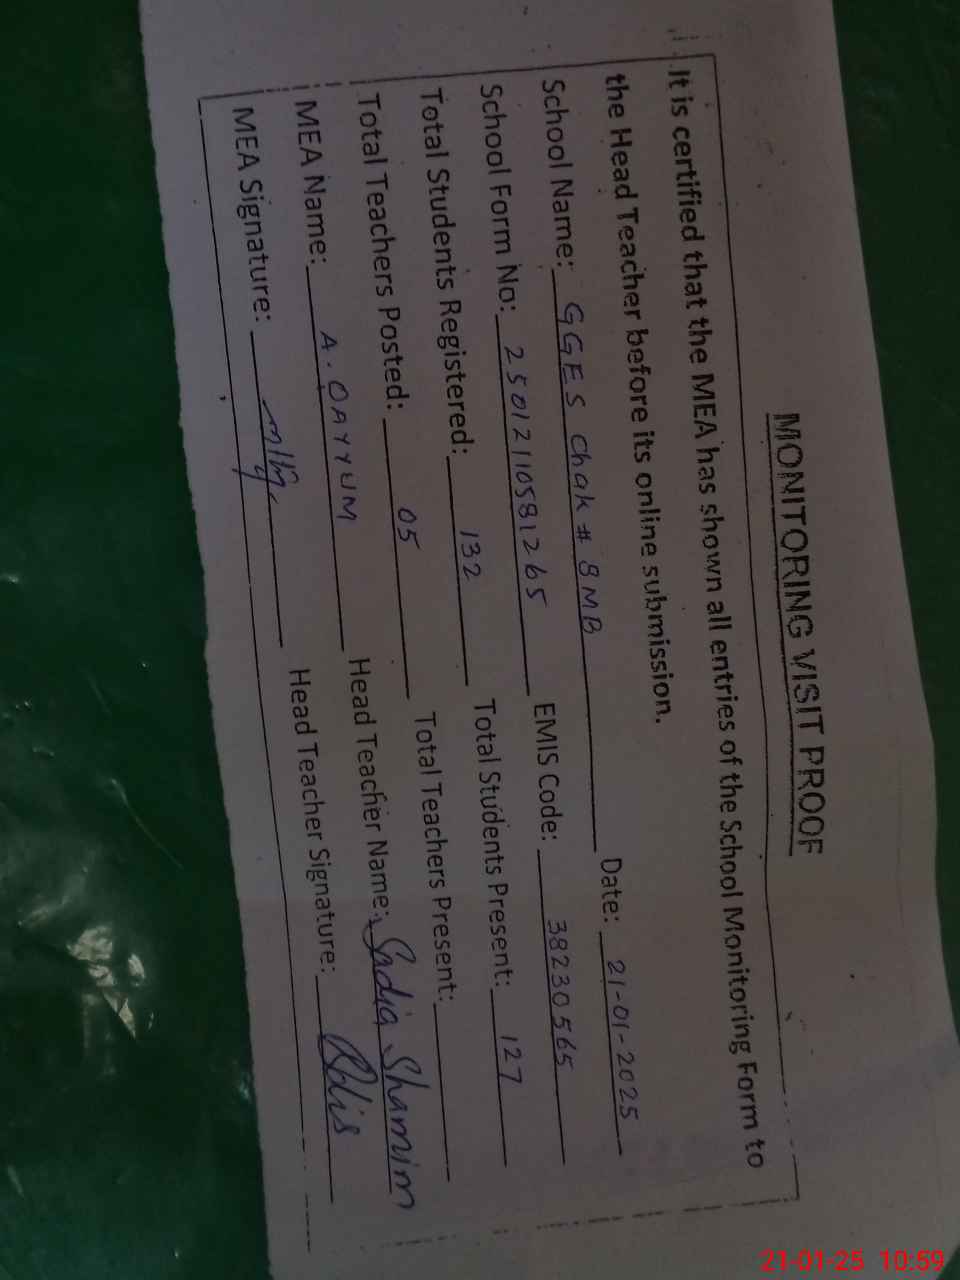 MONITORING VISIT PROOF
It is certified that the MEA has shown all entries of the School Monitoring Form to
the Head Teacher before its online submission.
School Name: GGES Chak # 8MB Date: 21-01-2025
School Form No: 25012110581265 EMIS Code: 38230565
Total Students Registered: 132 Total Students Present: 127
Total Teachers Posted: 05 Total Teachers Present:
MEA Name: A. QAYYUM Head Teacher Name: Sadia Shamim
MEA Signature: Head Teacher Signature:
21-01-25 10:59